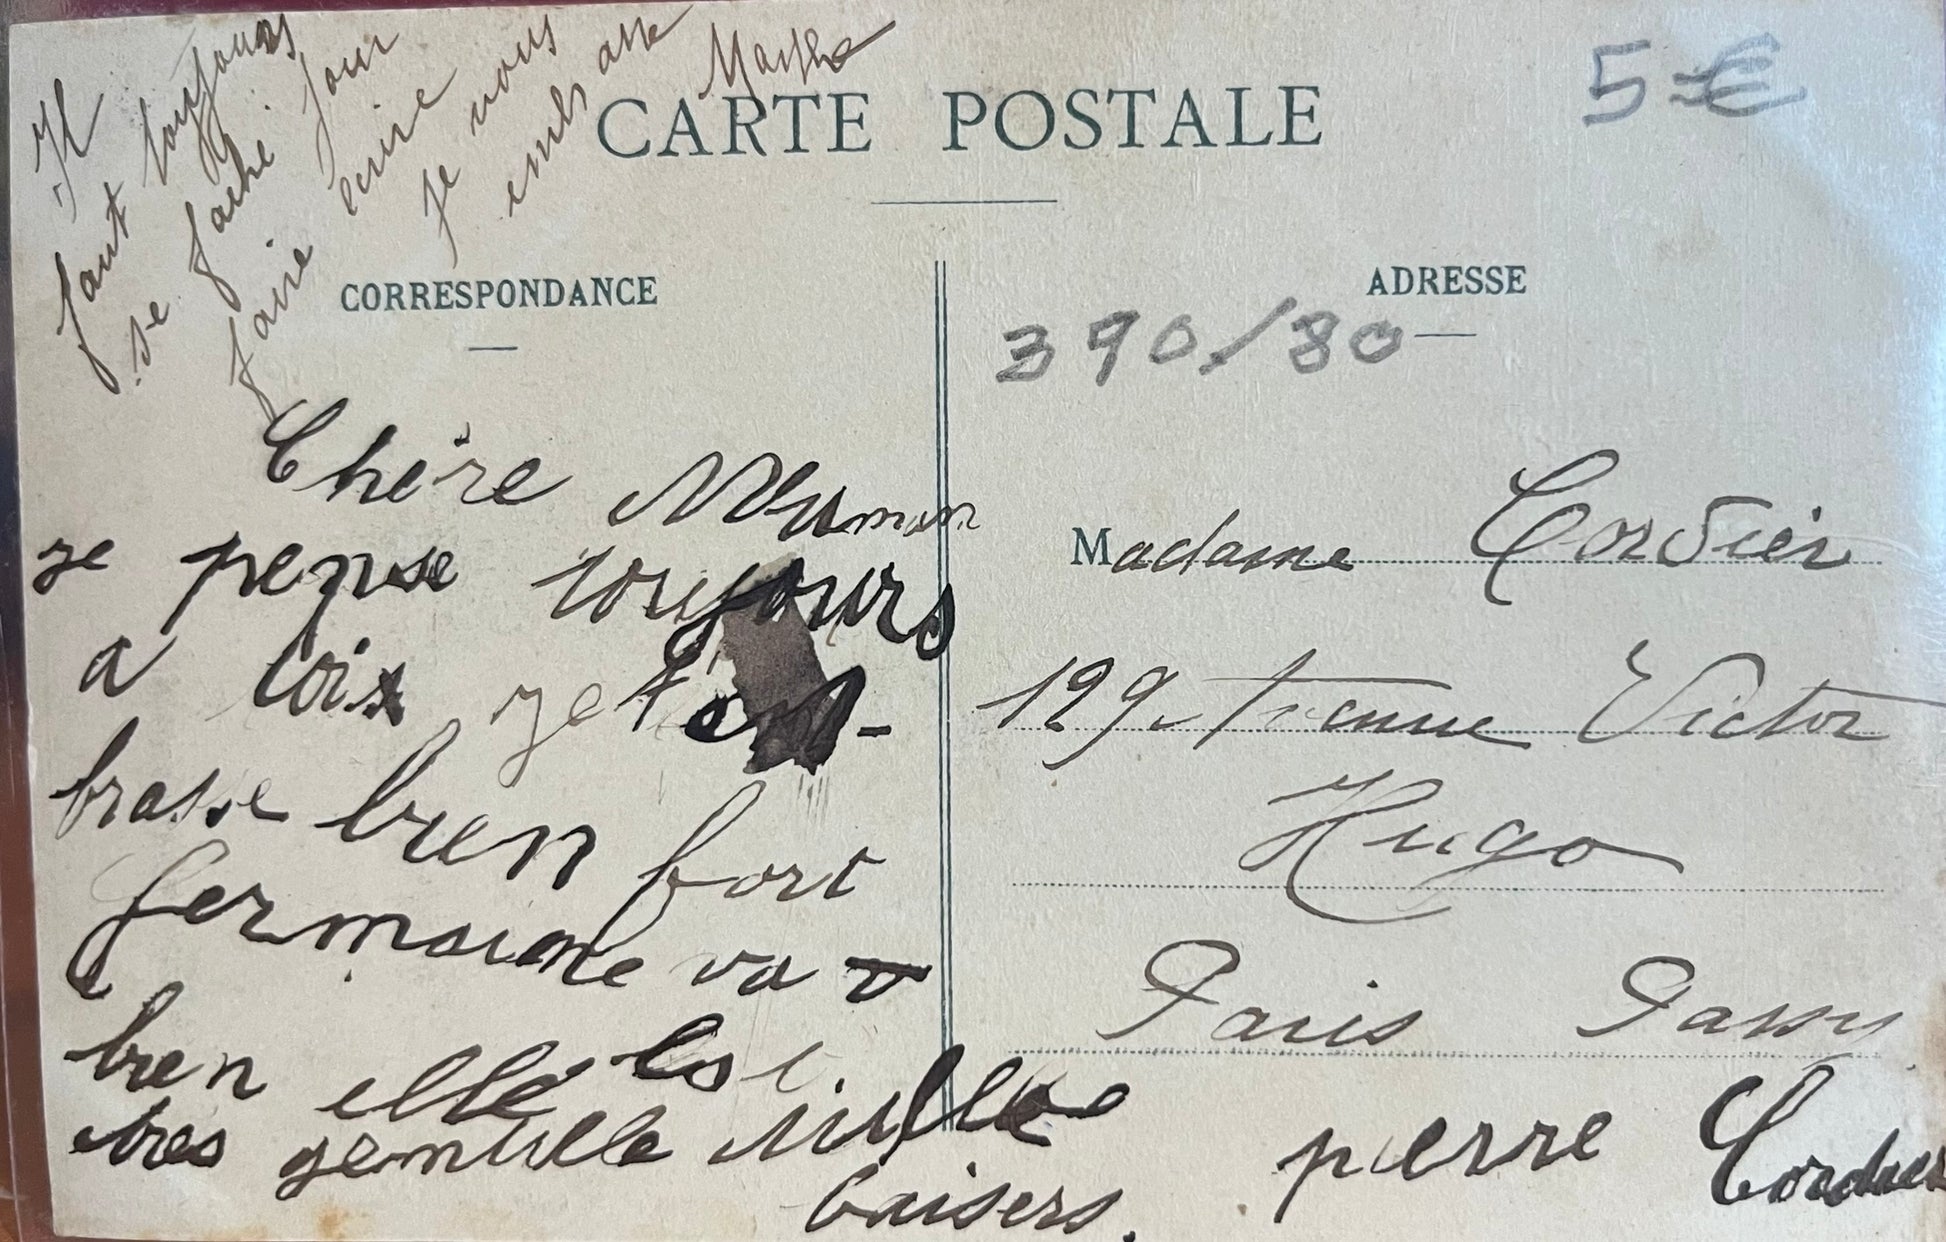 Il
faut toujours
se faché pour
faire ecrire
je vous
embrasse
Marthe
CARTE POSTALE
5 €
CORRESPONDANCE
ADRESSE
390/80
Chère Maman
je pense toujours
a toix je t'em-
brasse bien fort
germaine va
bien elle est
tres gentille mille
baisers.
pierre Cordier
Madame Cordier
129 Avenue Victor
Hugo
Paris Passy